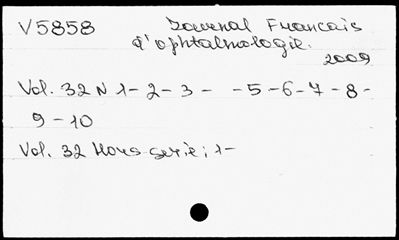 V5858 Journal Francais
d'ophtalmologie.
2009
Vol. 32 N 1 - 2 - 3 - - 5 - 6 - 7 - 8 -
9 - 10
Vol. 32 Hors serie; 1 -